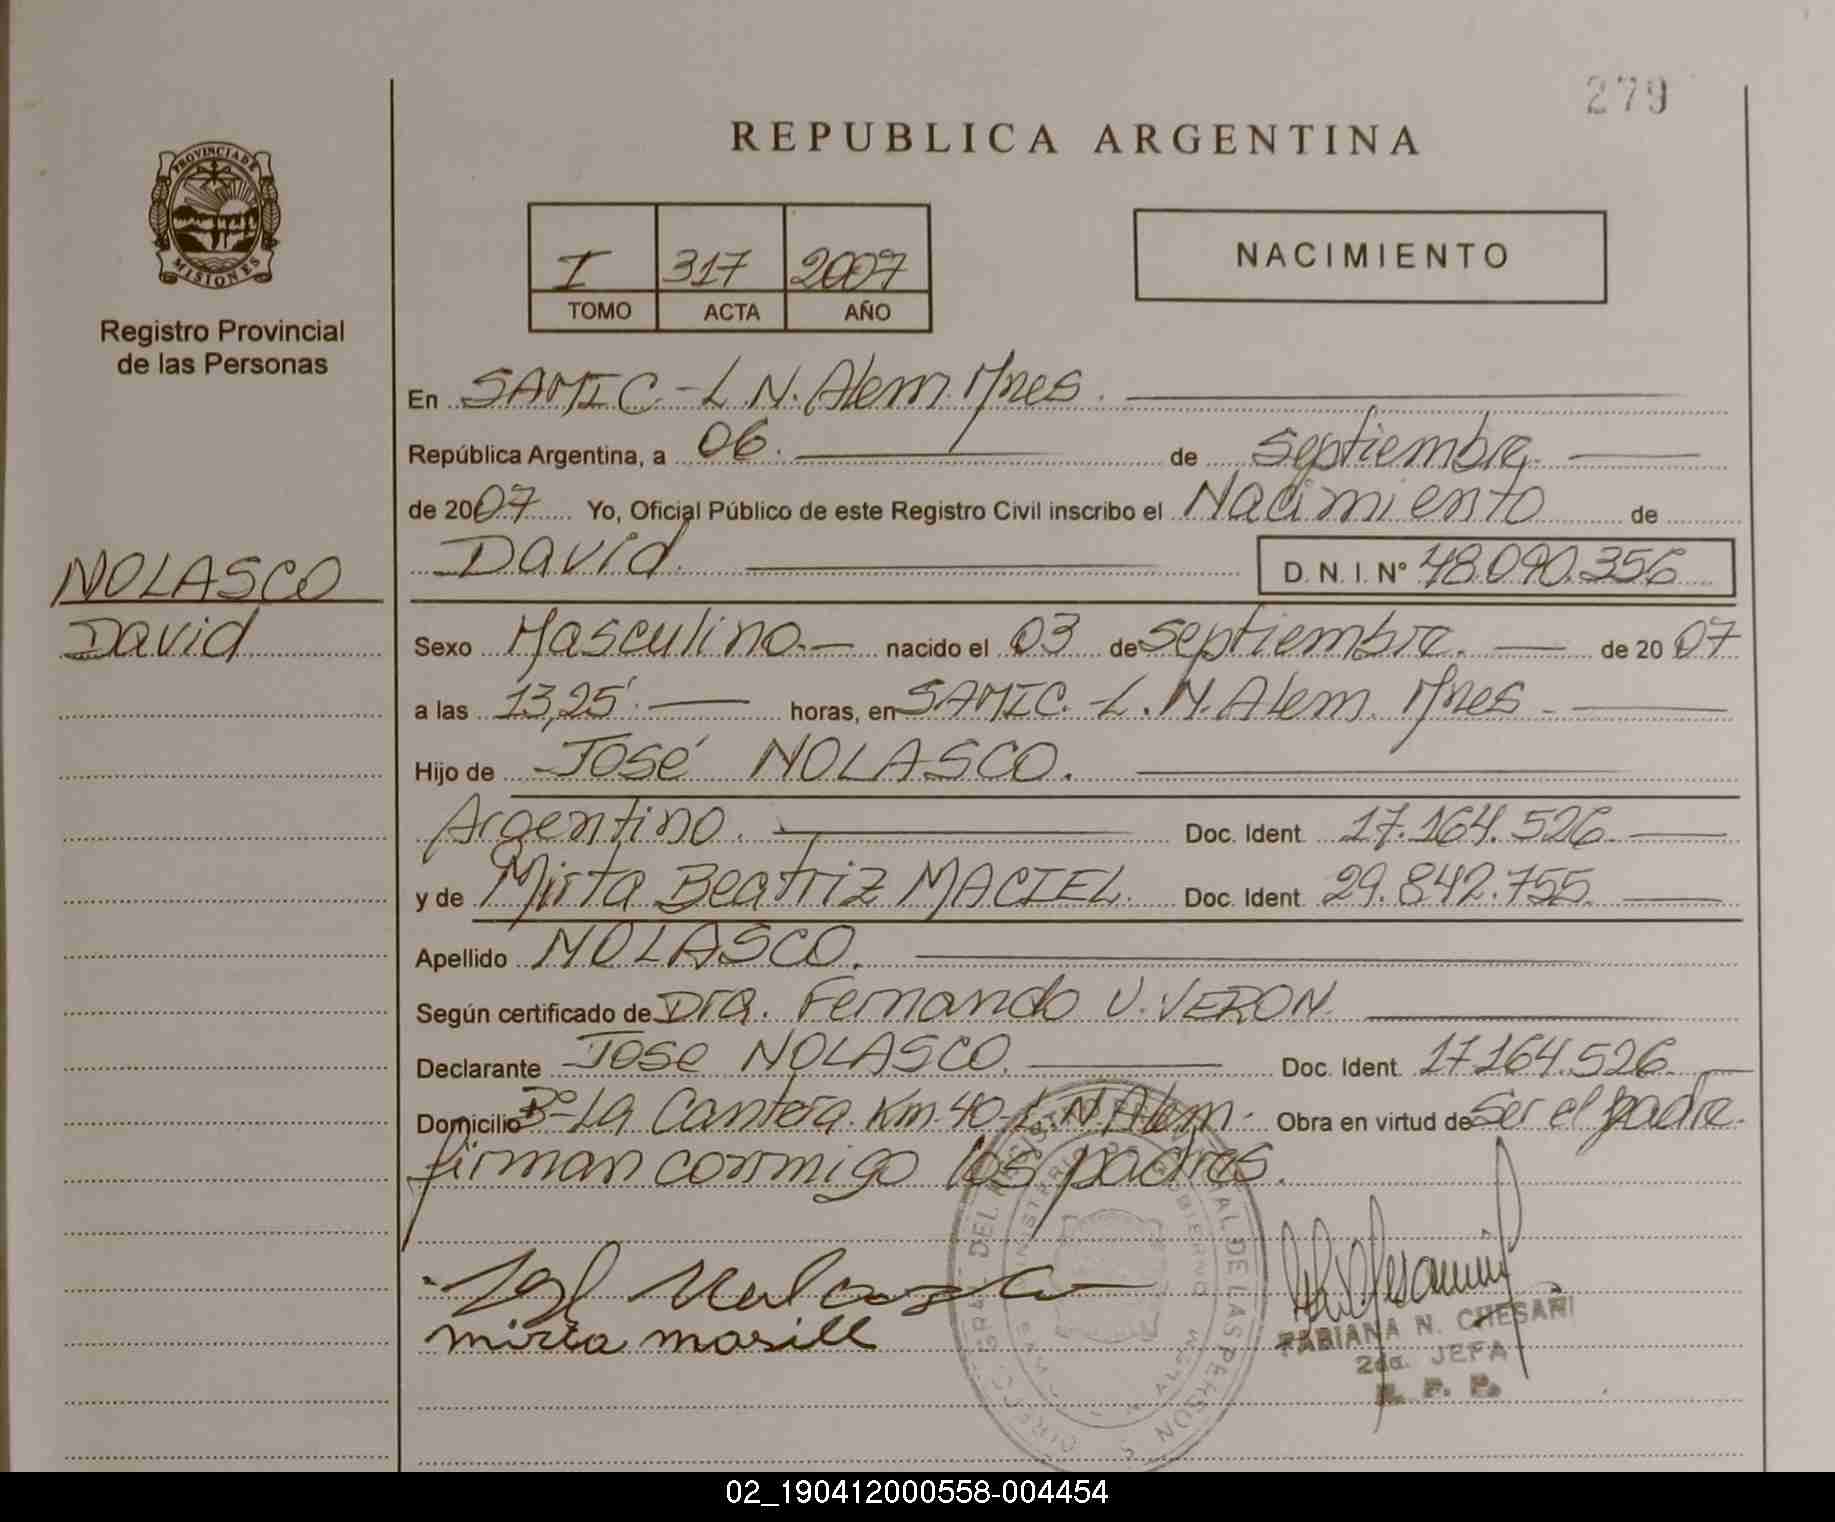 279
REPUBLICA ARGENTINA
PROVINCIA DE MISIONES
Registro Provincial
de las Personas
I 317 2007
TOMO ACTA AÑO
NACIMIENTO
En SAMIC - L.N. Alem. Mnes.
República Argentina, a 06. de septiembre.
de 2007 Yo, Oficial Público de este Registro Civil inscribo el Nacimiento de
David. D.N.I. Nº 48.090.356
NOLASCO
David
Sexo Masculino. nacido el 03 de septiembre. de 2007
a las 13,25' horas, en SAMIC. - L. N. Alem. Mnes
Hijo de José NOLASCO.
Argentino. Doc. Ident. 17.164.526.
y de Mirta Beatriz MACIEL. Doc. Ident. 29.842.755.
Apellido NOLASCO.
Según certificado de Dra. Fernando U. VERON.
Declarante Jose NOLASCO. Doc. Ident. 17.164.526.
Domicilio Bº - La Cantera. Km. 40 - L.N. Alem. Obra en virtud de ser el padre.
firman conmigo los padres.
FABIANA N. CHESAÑI
2da. JEFA
R. P. P.
02_190412000558-004454